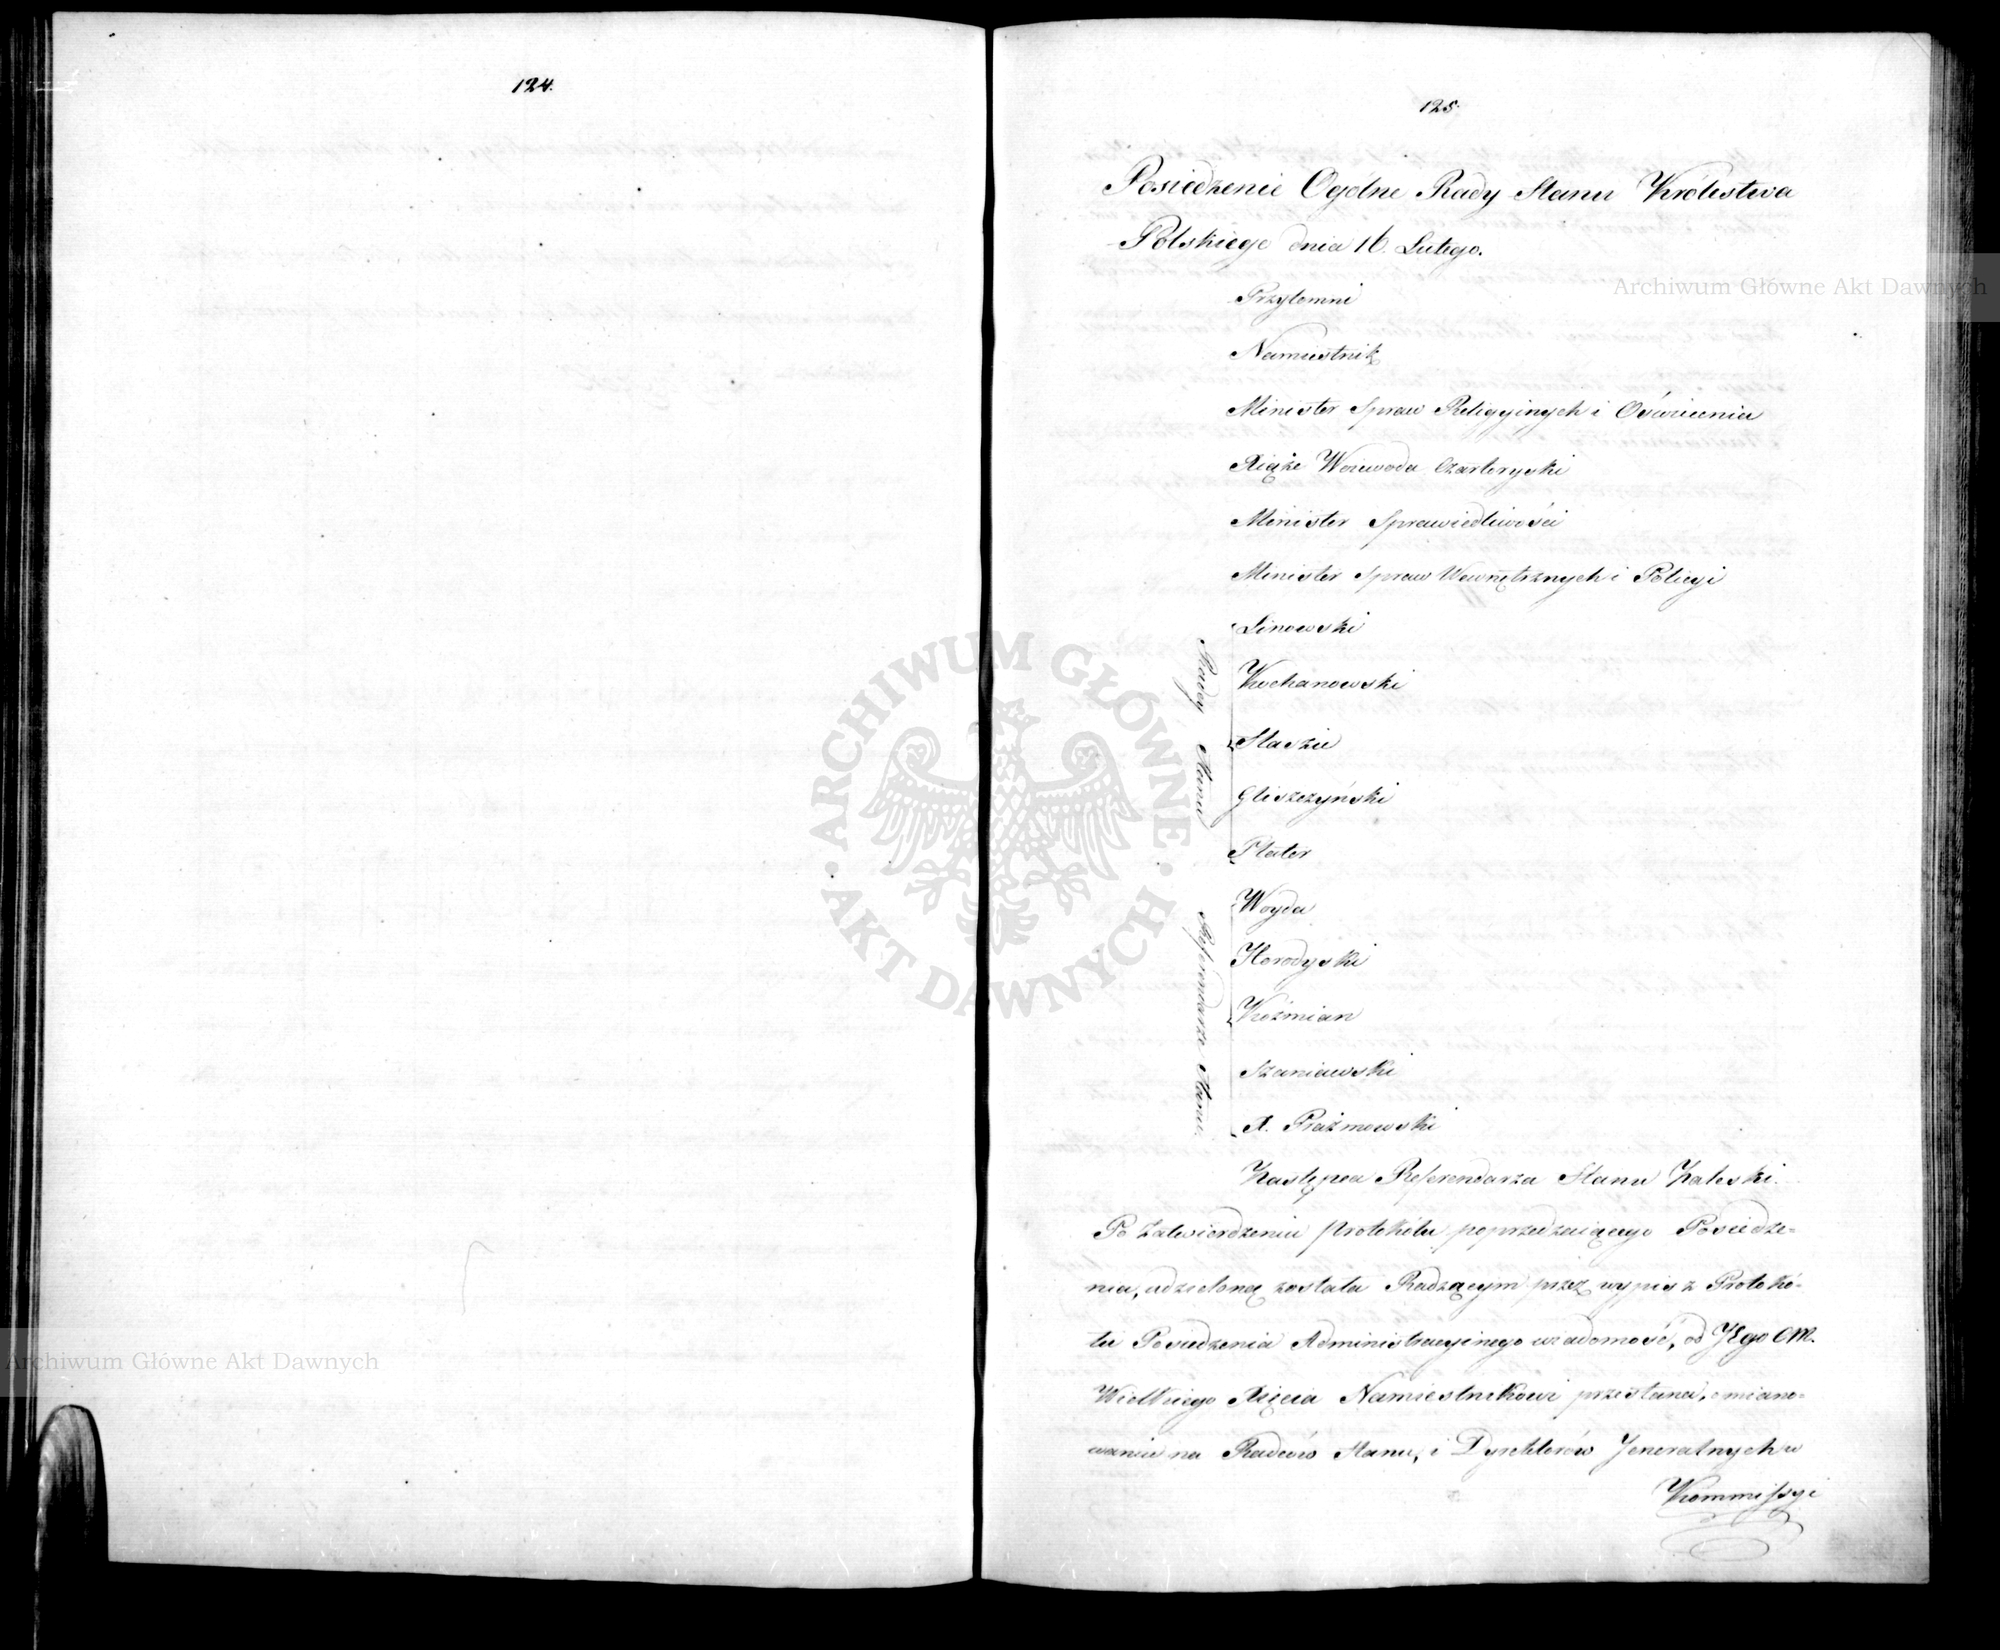 124.
125.
Posiedzenie Ogólne Rady Stanu Królestwa
Polskiego dnia 16. Lutego.
Przytomni
Namiestnik
Minister Spraw Religyinych i Oświecenia
Xiąże Woiewoda Czartoryski
Minister Sprawiedliwości
Minister Spraw Wewnętrznych i Policyi
Radcy Stanu
Linowski
Kochanowski
Staszic
Gliszczyński
Plater
Referendarze Stanu.
Woyda
Horodyski
Koźmian
Szaniawski
X. Prażmowski
Zastępca Referendarza Stanu Zaleski.
Po zatwierdzeniu Protokółu poprzedzaiącego Posiedze=
nia, udzieloną została Radzącym przez wypis z Protokó=
łu Posiedzenia Administracyinego wiadomość, od JEgo CM.
Wielkiego Xięcia Namiestnikowi przesłana, o miano=
waniu na Radców Stanu, i Dyrektorów Jeneralnych w
Kommissyi
Archiwum Główne Akt Dawnych
Archiwum Główne Akt Dawnych
ARCHIWUM GŁÓWNE AKT DAWNYCH